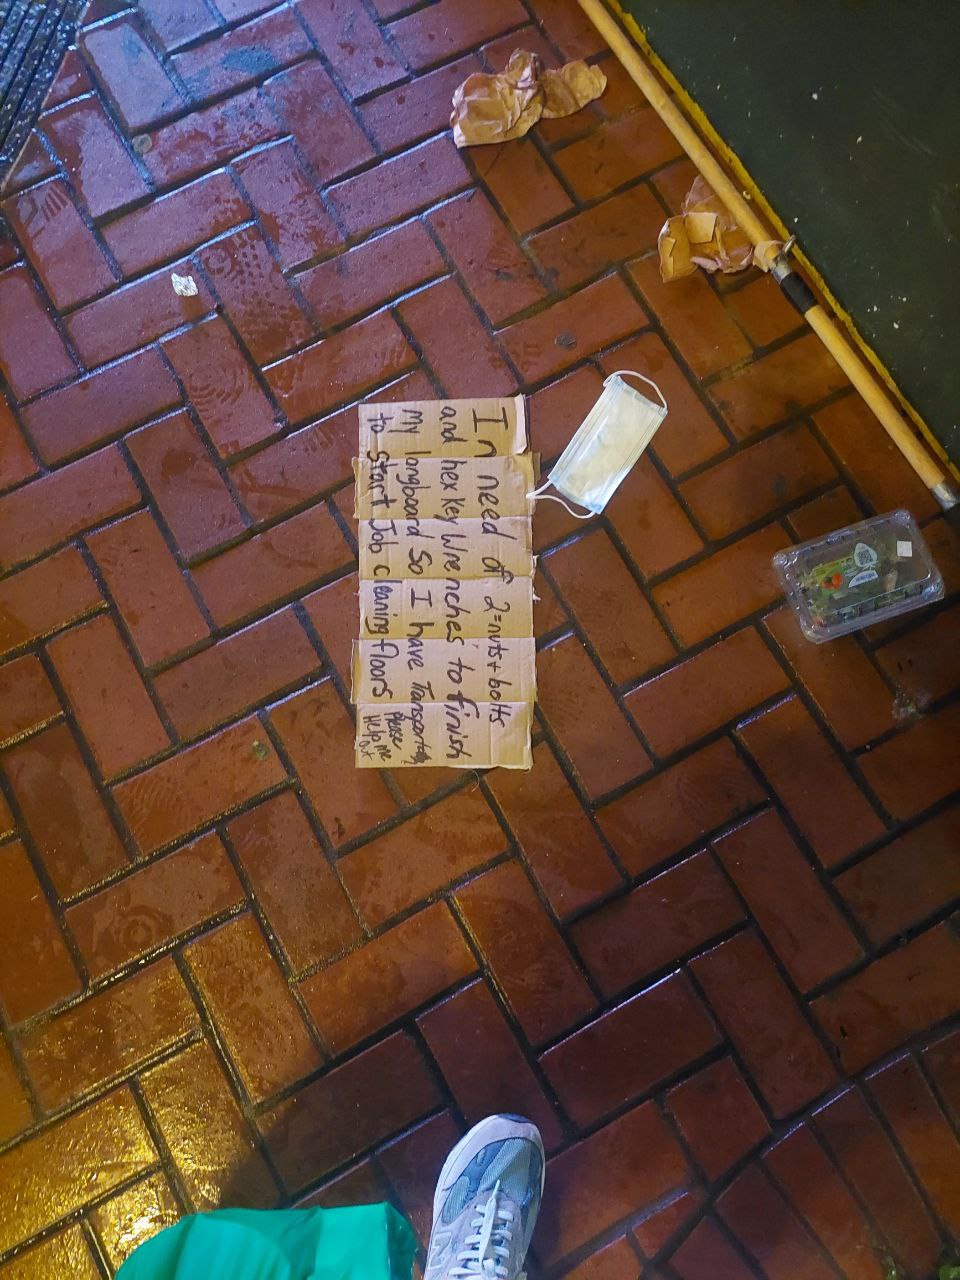 In need of 2=nuts + bolts
and hex key Wrenches, to finish
My longboard So I have Transportation
to start Job cleaning floors Please
Help me
out